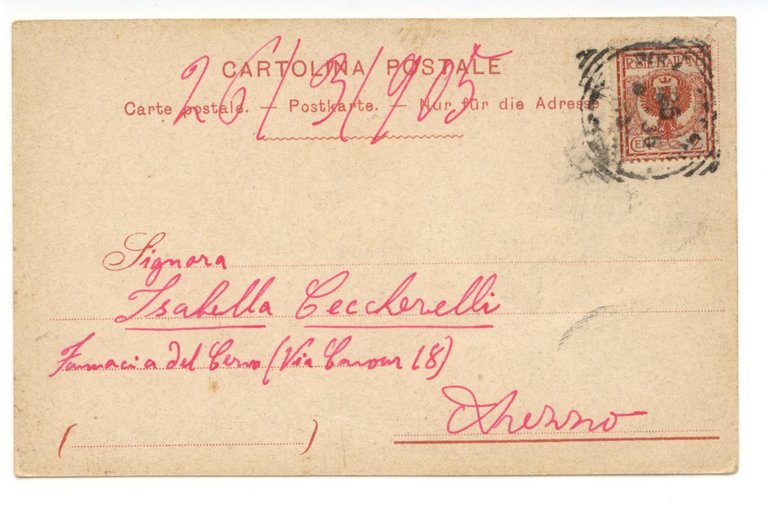 26/3/905
CARTOLINA POSTALE
Carte postale. — Postkarte. — Nur für die Adresse
POSTE ITALIANE
Signora
Isabella Ceccherelli
Farmacia del Cervo (Via Cavour 18)
Arezzo
( )